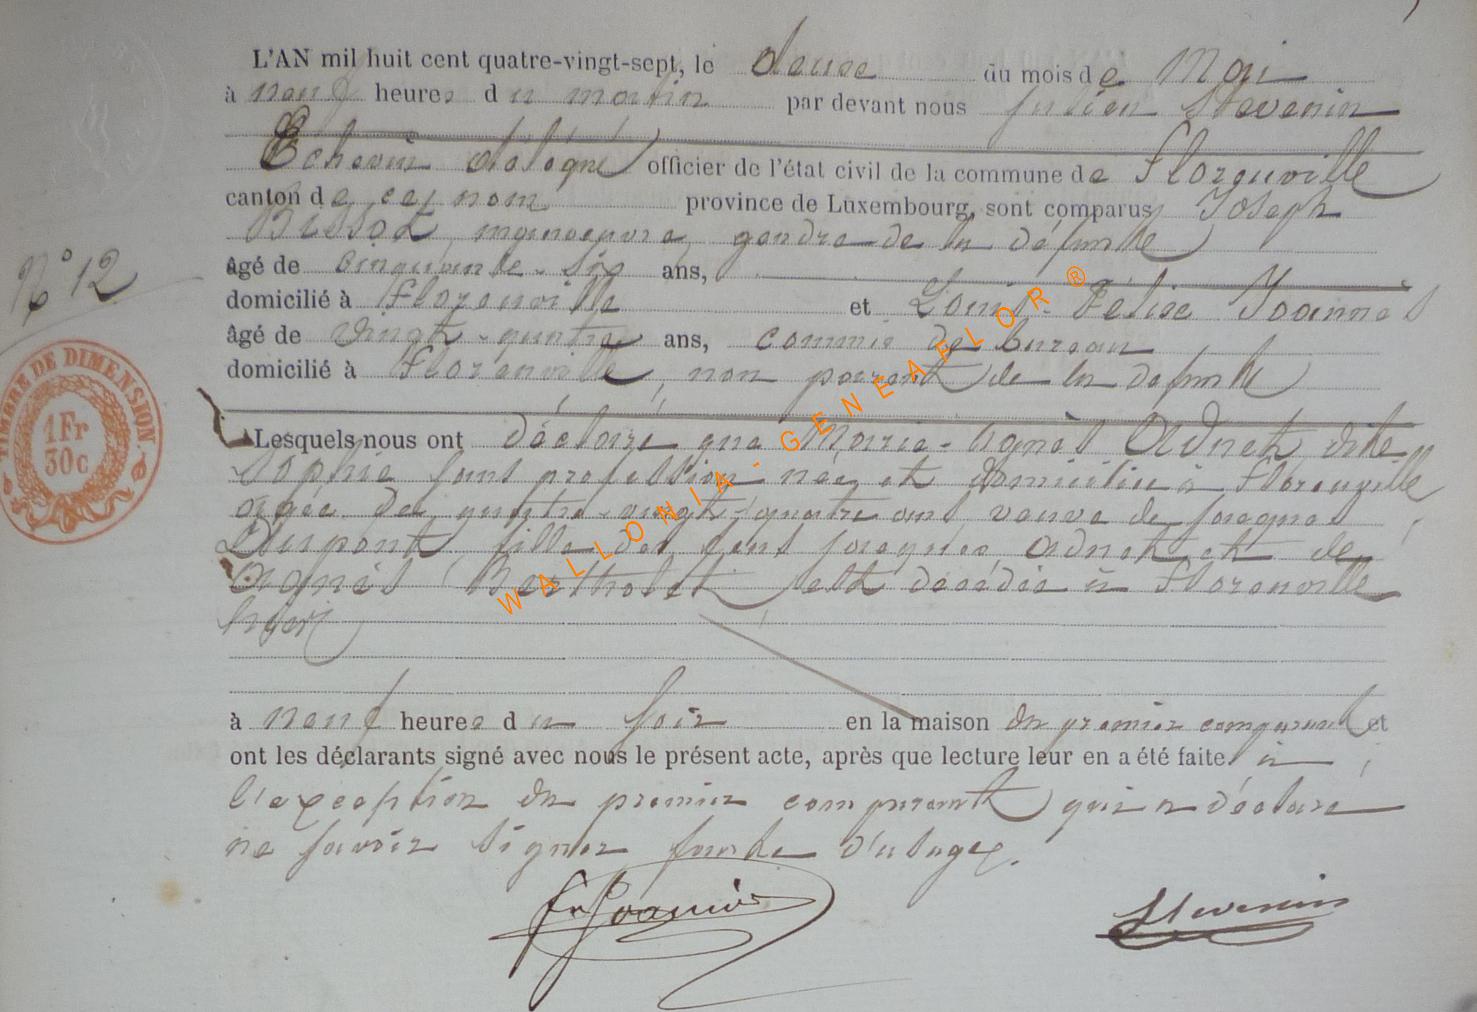 L'AN mil huit cent quatre-vingt-sept, le douze du mois de Mai
à neuf heures du matin par devant nous Julien Stevenin
Echevin délégué officier de l'état civil de la commune de Florenville
canton de ce nom province de Luxembourg, sont comparus Joseph
Bissot, manoeuvre, gendre de la défunte
âgé de cinquante-six ans,
N° 12
domicilié à Florenville et Louis-Félix Joannes
âgé de vingt-quatre ans, commis de bureau
domicilié à Florenville, non parent de la défunte
TIMBRE DE DIMENSION.
1Fr
30c
Lesquels nous ont déclaré que Marie-Agnès Adnet, dite
Sophie sans profession née et domiciliée à Florenville
âgée de quatre-vingt-quatre ans, veuve de Jacques
Dupont, fille des feus Jacques Adnet et de
Agnès Bertholet est décédée à Florenville
hier
à neuf heures du soir en la maison du premier comparant et
ont les déclarants signé avec nous le présent acte, après que lecture leur en a été faite à
l'exception du premier comparant qui a déclaré
ne savoir signer faute d'usage.
Stevenin
WALLONIA-GENEAFLOR®